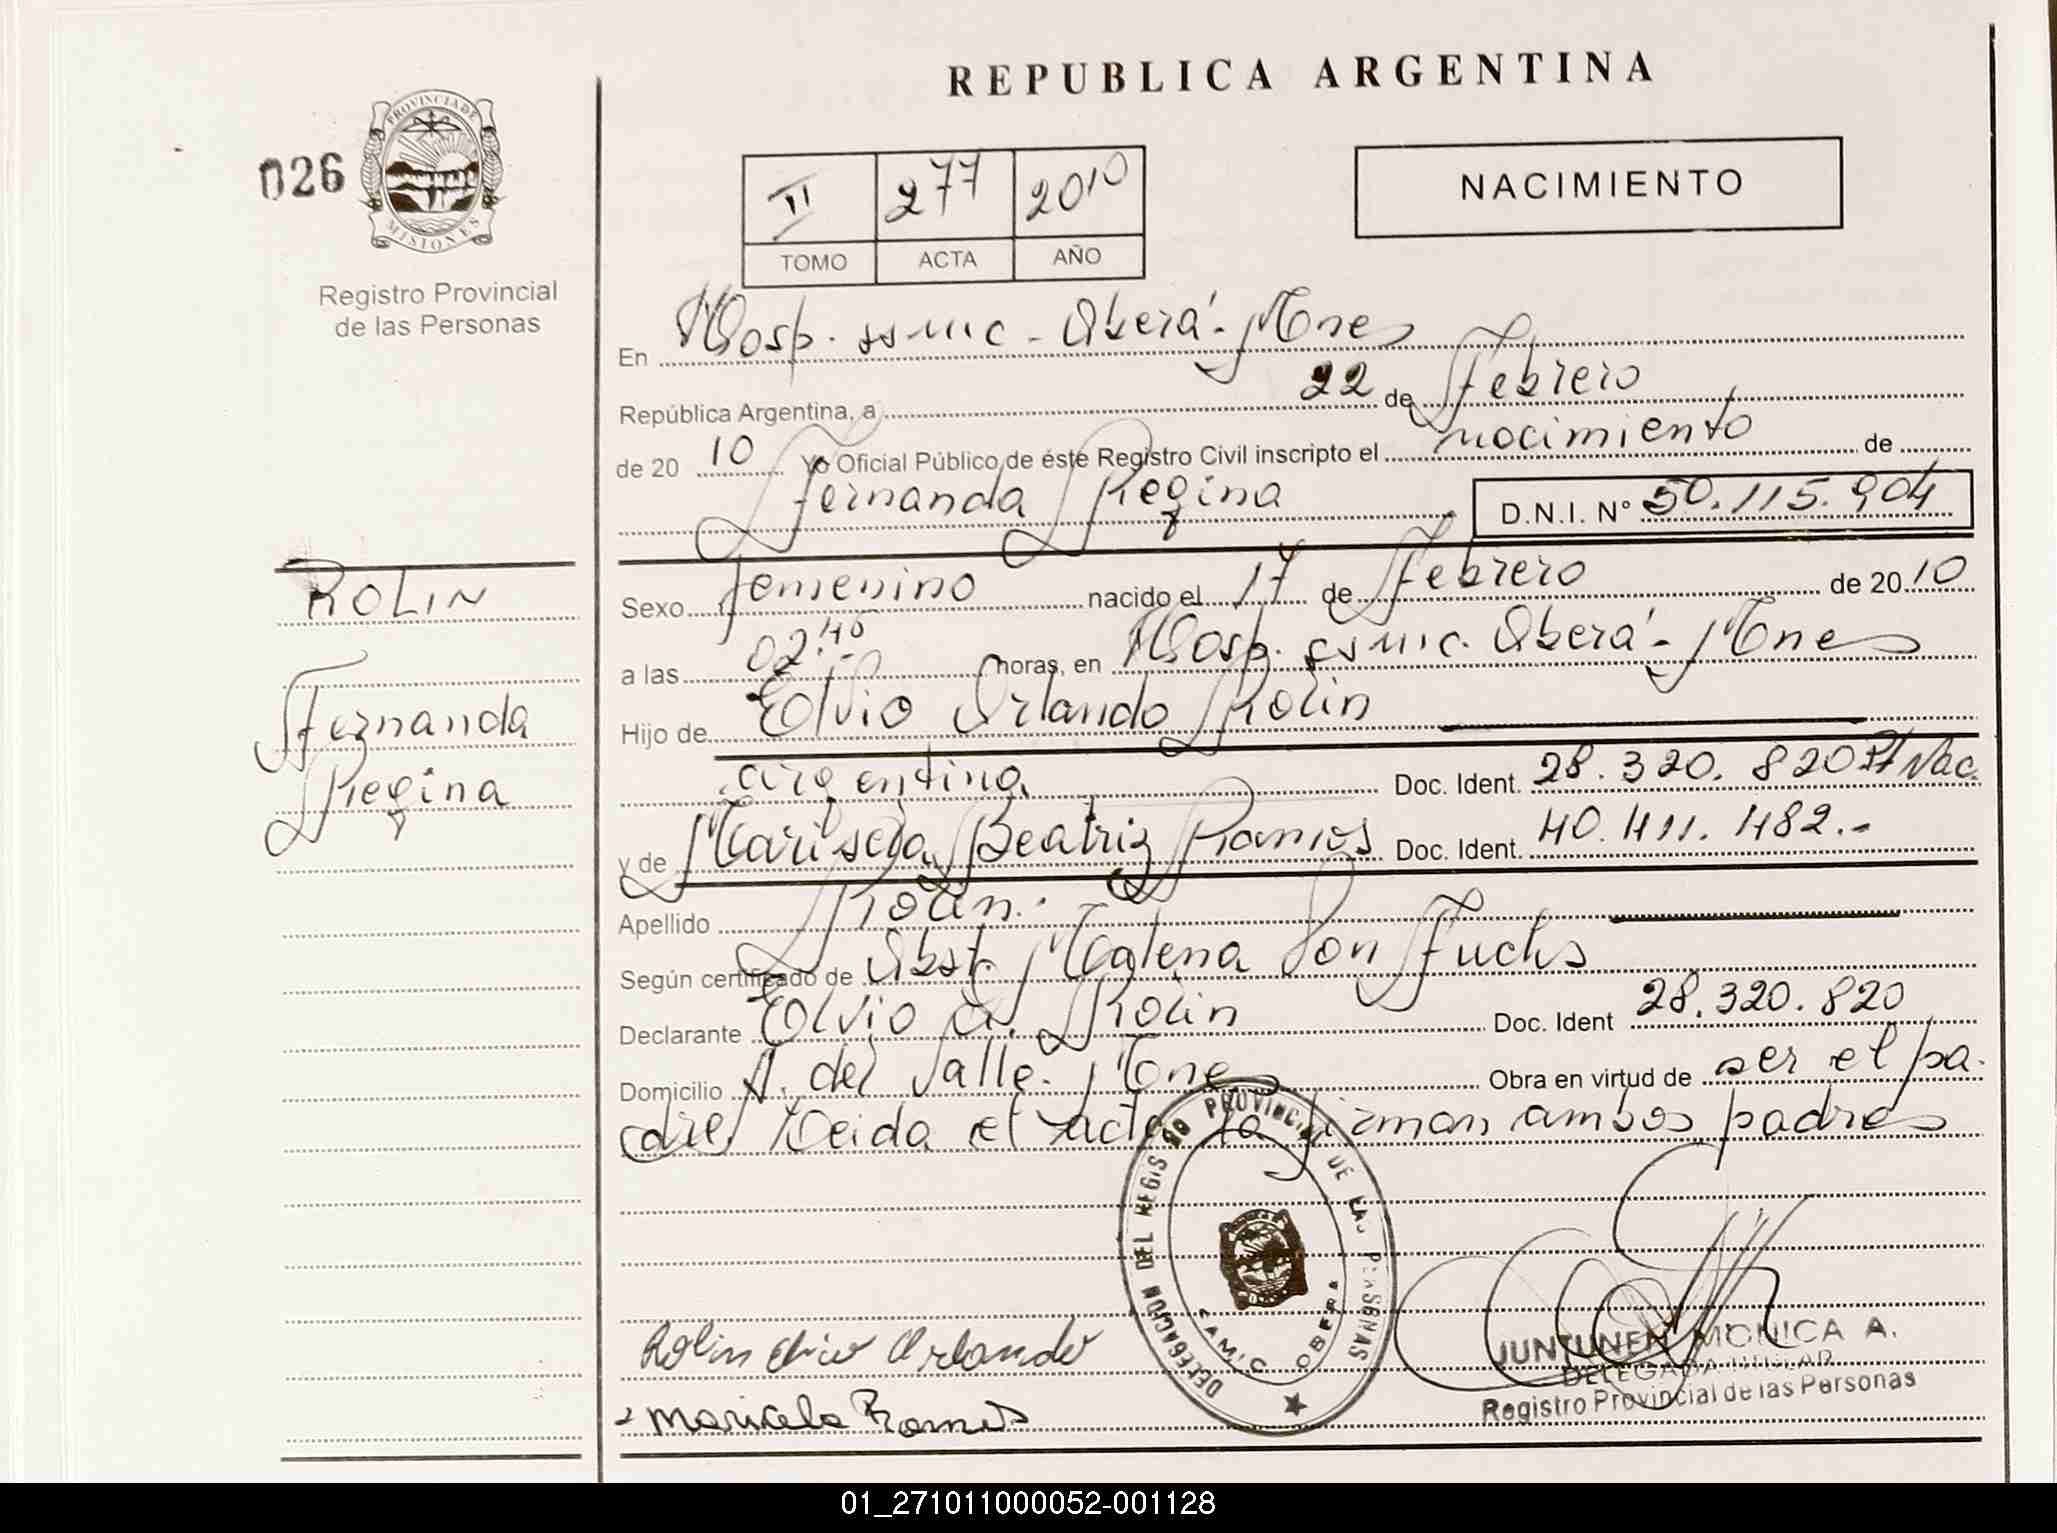 REPUBLICA ARGENTINA
026
PROVINCIA DE MISIONES
Registro Provincial
de las Personas
II 277 2010
TOMO ACTA AÑO
NACIMIENTO
En Hosp. ssmic - Oberá - Mnes
República Argentina, a 22 de Febrero
de 20 10 Yo Oficial Público de éste Registro Civil inscripto el nacimiento de
Fernanda Regina D.N.I. Nº 50.115.904
ROLIN
Fernanda
Regina
Sexo femenino nacido el 17 de Febrero de 2010
a las 02:45 horas, en Hosp. ssmic. Oberá - Mnes
Hijo de Elvio Orlando Rolin
argentina Doc. Ident. 28.320.820 Nac.
y de Marisela Beatriz Ramos Doc. Ident. 40.411.482.-
Apellido Rolin.-
Según certificado de Obst. Malena Von Fuchs
Declarante Elvio O. Rolin Doc. Ident 28.320.820
Domicilio A. del Valle. Mnes Obra en virtud de ser el pa-
dre Leida el acta la firman ambos padres
DELEGACION DEL REGISTRO PROVINCIAL DE LAS PERSONAS
SAMIC OBERA
Rolin Elvio Orlando
Maricela Ramos
JUNTUNEN MONICA A.
DELEGADA TITULAR
Registro Provincial de las Personas
01_271011000052-001128